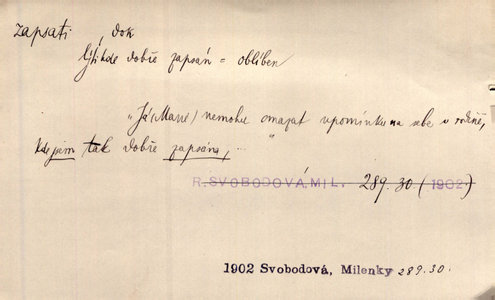 zapsati, dok
býti kde dobře zapsán = oblíben
„Já (Marie) nemohu smazat upomínku na sebe v rodině,
kde jsem tak dobře zapsána, ..."
R. SVOBODOVÁ, MIL. 289.30 (1902.)
1902 Svobodová, Milenky 289.30.